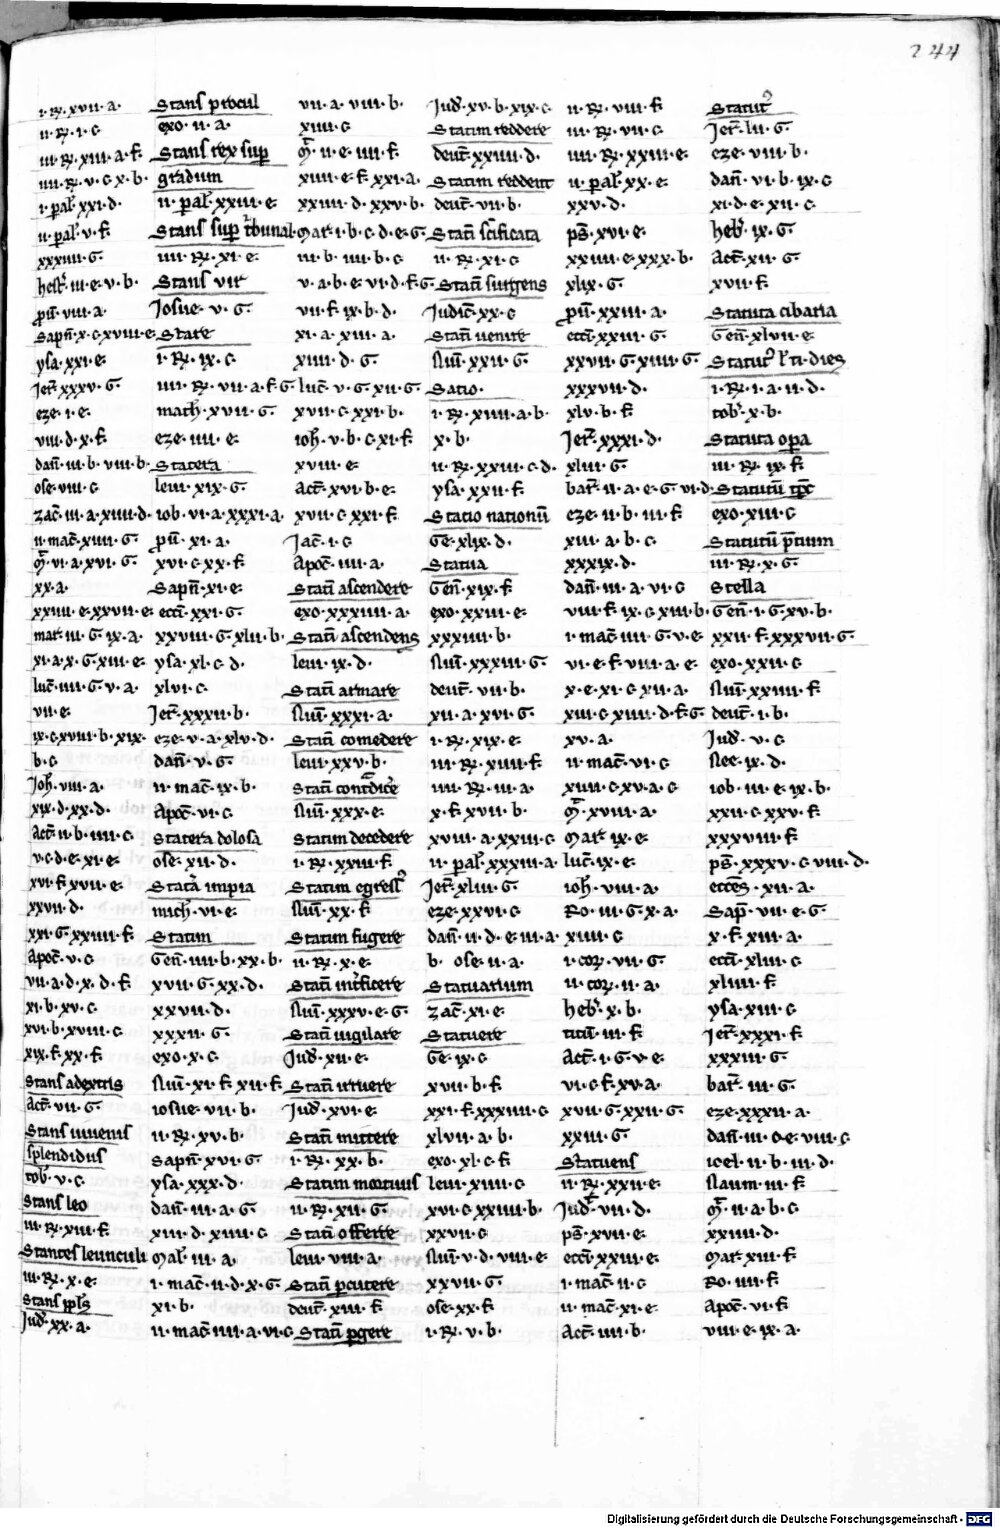 244
i · Rx · xvii · a ·
ii · Rx · i · c
iii · Rx · xiii · a · f
iiii · Rx · v · c · x · b ·
i · pal' · xxi · d ·
ii · pal' · v · f
xxxiiii · G
hest' · iii · e · v · b ·
pū · viii · a ·
Sapn̄ · x · c · xviii · e
ysa · xxi · e
Jer̄ · xxxv · G
eze · i · e
viii · d · x · f
dan̄ · iii · b · viii · b ·
ose · viii · c
zac̄ · iii · a · xiiii · d ·
ii · mac̄ · xiiii · G
vi · a · xvi · G
xx · a ·
xxiiii · e · xxvii · e
mar̄ · iii · G · ix · a ·
xi · a · x · G · xiii · e
luc̄ · iiii · G · v · a ·
vii · e
ix · c · xviii · b · xix ·
b · c
Joh̄ · viii · a ·
xix · d · xx · d ·
Act̄ · ii · b · iiii · c
v · c · d · e · xi · e
xvi · f · xvii · e
xxvii · d ·
xxi · G · xxiiii · f
Apoc̄ · v · c
vii · a · d · x · d · f
xi · b · xv · c
xvi · b · xviii · c
xix · f · xx · f
Stans adextris
Act̄ · vii · G
Stans iuvenis
splendidus
tob' · v · c
Stans leo
iii · Rx · xiii · f
Stantes leunculi
iii · Rx · x · e
Stans ppl's
Jud' · xx · a ·
Stans procul
exo · ii · a ·
Stans rex sup
gradum
ii · pal' · xxiii · e
Stans sup tribunal
iiii · Rx · xi · e
Stans vir
Josue · v · G
Stare
i · Rx · ix · c
iiii · Rx · vii · a · f · G
math · xvii · G
eze · iii · e
Statera
levi · xix · G
iob · vi · a · xxxi · a
pū · xi · a ·
xvi · c · xx · f
Sapn̄ · xi · e
eccī · xxi · G
xxviii · G · xlii · b ·
ysa · xl · c · d ·
xlvi · c
Jer̄ · xxxii · b ·
eze · v · a · xlv · d ·
dan̄ · v · G
ii · mac̄ · ix · b ·
Apoc̄ · vi · c
Statera dolosa
ose · xii · d ·
Statā impia
mich · vi · e
Statim
Gen̄ · iiii · b · xx · b ·
xvii · G · xx · d ·
xxvii · d ·
xxxii · G
exo · x · c
Nūm · xi · f · xii · f
iosue · vii · b ·
ii · Rx · xv · b ·
Sapn̄ · xvi · G
ysa · xxx · d ·
dan̄ · iii · a · G
xiii · d · xiiii · c
mal' · iii · a ·
i · mac̄ · ii · d · x · G
xi · b ·
ii · mac̄ · iiii · a · vi · c
vii · a · viii · b ·
xiiii · c
ii · e · iiii · f
xiii · e · f · xxi · a ·
xxiiii · d · xxv · b ·
Mar · i · b · c · d · e · G
iii · b · iiii · b · c
v · a · b · e · vi · d · f · G
vii · f · ix · b · d ·
xi · a · xiii · a ·
xiiii · d · G
luc̄ · v · G · xii · G
xvii · c · xxi · b ·
ioh̄ · v · b · c · xi · f
xviii · e
Act̄ · xvi · b · e
xvii · c · xxi · f
Jac̄ · i · c
Apoc̄ · iiii · a ·
Statī ascendere
exo · xxxiiii · a ·
Statī ascendens
levi · ix · d ·
Statī armare
Nūm · xxxi · a ·
Statī comedere
levi · xxv · b ·
Statī contradice
Nūm · xxx · e
Statim decedere
i · Rx · xxiii · f
Statim egress'
Nūm · xx · f
Statim fugere
ii · Rx · x · e
Statī int'ficere
Nūm · xxxv · e · G
Statī vigilare
Jud' · xii · e
Statī irruere
Jud' · xvi · e
Statī mittere
i · Rx · xx · b ·
Statim mortuus
ii · Rx · xii · G
Statī offerre
levi · viii · a ·
Statī pcutere
deut̄ · xiii · f
Statī pgere
Jud' · xv · b · xix · c
Statim reddere
deut̄ · xxiiii · d ·
Statim reddent
deut̄ · vii · b ·
Statī scificata
ii · Rx · xi · c
Statī surgens
Judic̄ · xx · c
Statī venire
Nūm · xxii · G
Statio ·
i · Rx · xiiii · a · b ·
x · b ·
ii · Rx · xxiii · c · d ·
ysa · xxii · f
Statio nationū
Ge · xlix · d ·
Statua
Gen̄ · xix · f
exo · xxiii · e
xxxiiii · b ·
Nūm · xxxiii · G
deut̄ · vii · b ·
xii · a · xvi · G
i · Rx · xix · e
iii · Rx · xiiii · f
iiii · Rx · iii · a ·
x · f · xvii · b ·
xviii · a · xxiii · c
ii · pal' · xxxiii · a
Jer̄ · xliii · G
eze · xxvi · c
dan̄ · ii · d · e · iii · a ·
b · ose · ii · a ·
Statuarium
zac̄ · xi · e
Statuere
Ge · ix · c
xvii · b · f
xxi · f · xxxiiii · c
xlvii · a · b ·
exo · xl · c · f
levi · xiiii · c
xvi · c · xxiiii · b ·
xxvii · c
Nūm · v · d · viii · e
xxvii · G
ose · xx · f
i · Rx · v · b ·
ii · Rx · viii · f
iii · Rx · vii · c
iiii · Rx · xxiii · e
ii · pal' · xx · e
xxv · d ·
ps̄ · xvi · e
xxiiii · e · xxx · b ·
xlix · G
pū · xxiii · a ·
eccī · xxiii · G
xxvii · G · xiiii · G
xxxvii · d ·
xlv · b · f
Jer̄ · xxxi · d ·
xliii · G
bar̄ · ii · a · e · G · vi · d ·
eze · ii · b · iii · f
xiii · a · b · c
xxxix · d ·
dan̄ · iii · a · vi · c
viii · f · ix · c · xiii · b ·
i · mac̄ · iiii · G · v · e
vi · e · f · viii · a · e
x · e · xi · c · xii · a ·
xiii · c · xiiii · d · f · G
xv · a ·
ii · mac̄ · vi · c
xiiii · c · xv · a · c
xviii · a ·
Mar̄ · ix · e
luc̄ · ix · e
ioh̄ · viii · a ·
Ro · iii · G · x · a ·
xiiii · c
i · cor · vii · G
ii · cor · ii · a ·
hebr' · x · b ·
titū · iii · f
Act̄ · i · G · v · e
vi · c · f · xv · a ·
xvii · G · xxii · G
xxiii · G
Statuens
ii · Rx · xxii · e
Jud' · vii · d ·
ps̄ · xvii · e
eccī · xxiii · e
i · mac̄ · ii · c
ii · mac̄ · xi · e
Act̄ · iiii · b ·
Statut'
Jer̄ · lii · G
eze · viii · b ·
dan̄ · vi · b · ix · c
xi · d · e · xii · c
hebr' · ix · G
Act̄ · xii · G
xvii · f
Statuta cibaria
Gen̄ · xlvii · e
i · Rx · i · a · ii · d ·
tob' · x · b ·
Statuta opa
iii · Rx · ix · f
Statutū tp̄c
exo · xiii · c
Statutū p̄tium
iii · Rx · x · G
Stella
Gen̄ · i · G · xv · b ·
xxii · f · xxxvii · G
exo · xxii · c
Nūm · xxiiii · f
deut̄ · i · b ·
Jud' · v · c
Nee · ix · d ·
iob · iii · e · ix · b ·
xxii · c · xxv · f
xxxviii · f
ps̄ · xxxv · c · viii · d ·
ecces̄ · xii · a ·
Sap̄ · vii · e · G
x · f · xiii · a ·
eccī · xliii · c
xliiii · f
ysa · xiii · c
Jer̄ · xxxi · f
xxxiii · G
bar̄ · iii · G
eze · xxxii · a ·
dan̄ · iii · c · e · viii · c
ioel · ii · b · iii · d ·
Naum · iii · f
ii · a · b · c
xxiiii · d ·
Mar · xiii · f
Ro · iiii · f
Apoc̄ · vi · f
viii · e · ix · a ·
Digitalisierung gefördert durch die Deutsche Forschungsgemeinschaft - DFG